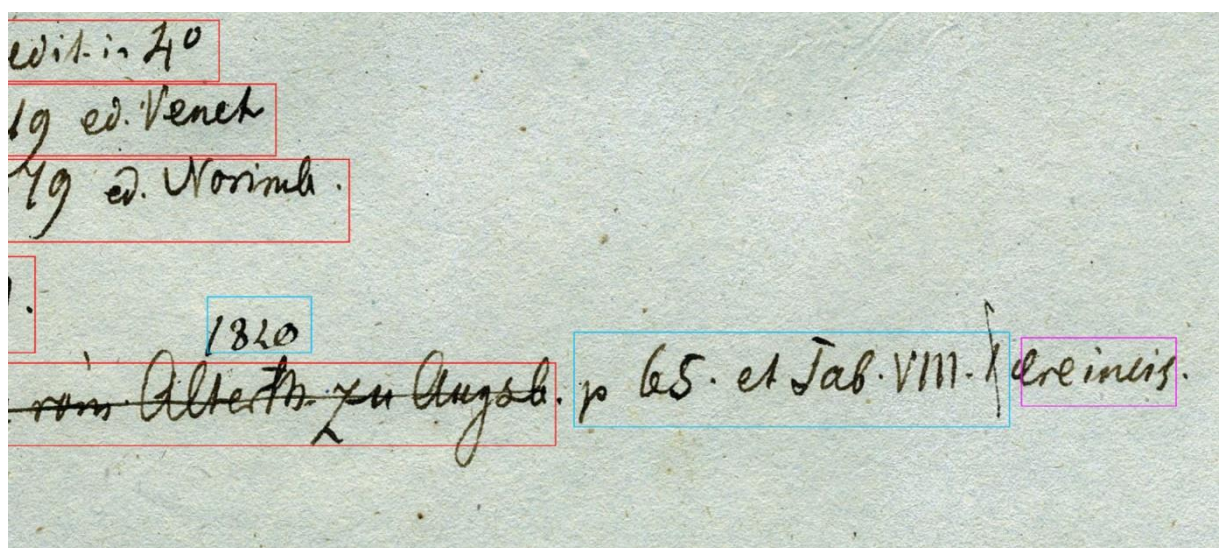 edit. in 4º
19 ed. Venet
79 ed. Norimb.
1820
röm Alterth. zu Augsb. p 65. et Tab. VIII. aere incis.